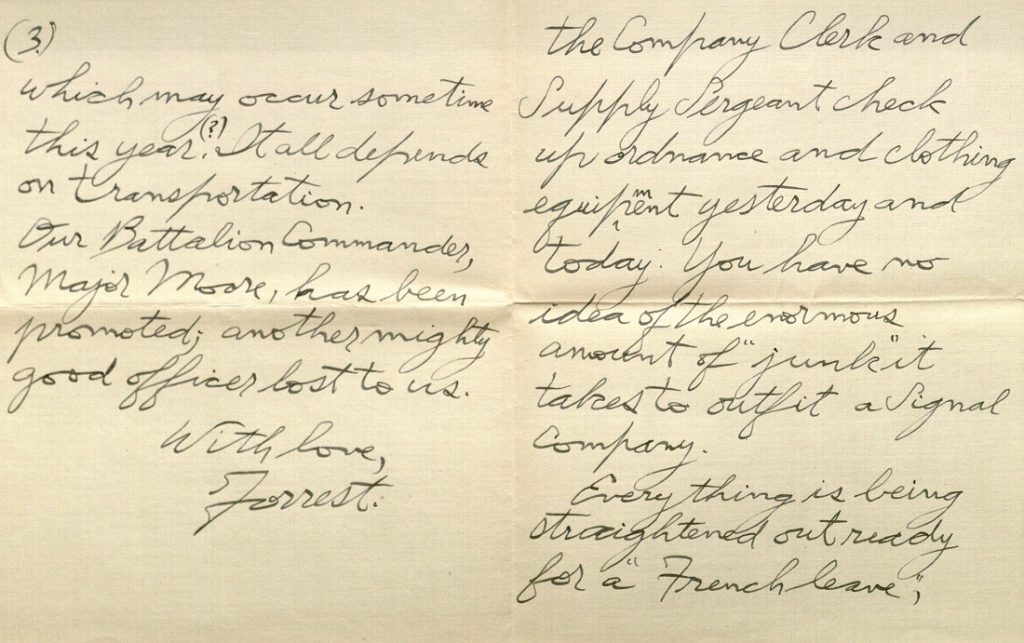 the Company Clerk and
Supply Sergeant check
up ordnance and clothing
equipment yesterday and
today. You have no
idea of the enormous
amount of "junk" it
takes to outfit a Signal
Company.
Everything is being
straightened out ready
for a "French leave",
(3.)
which may occur sometime
this year(?). It all depends
on transportation.
Our Battalion Commander,
Major Moore, has been
promoted; another mighty
good officer lost to us.
With love,
Forrest.